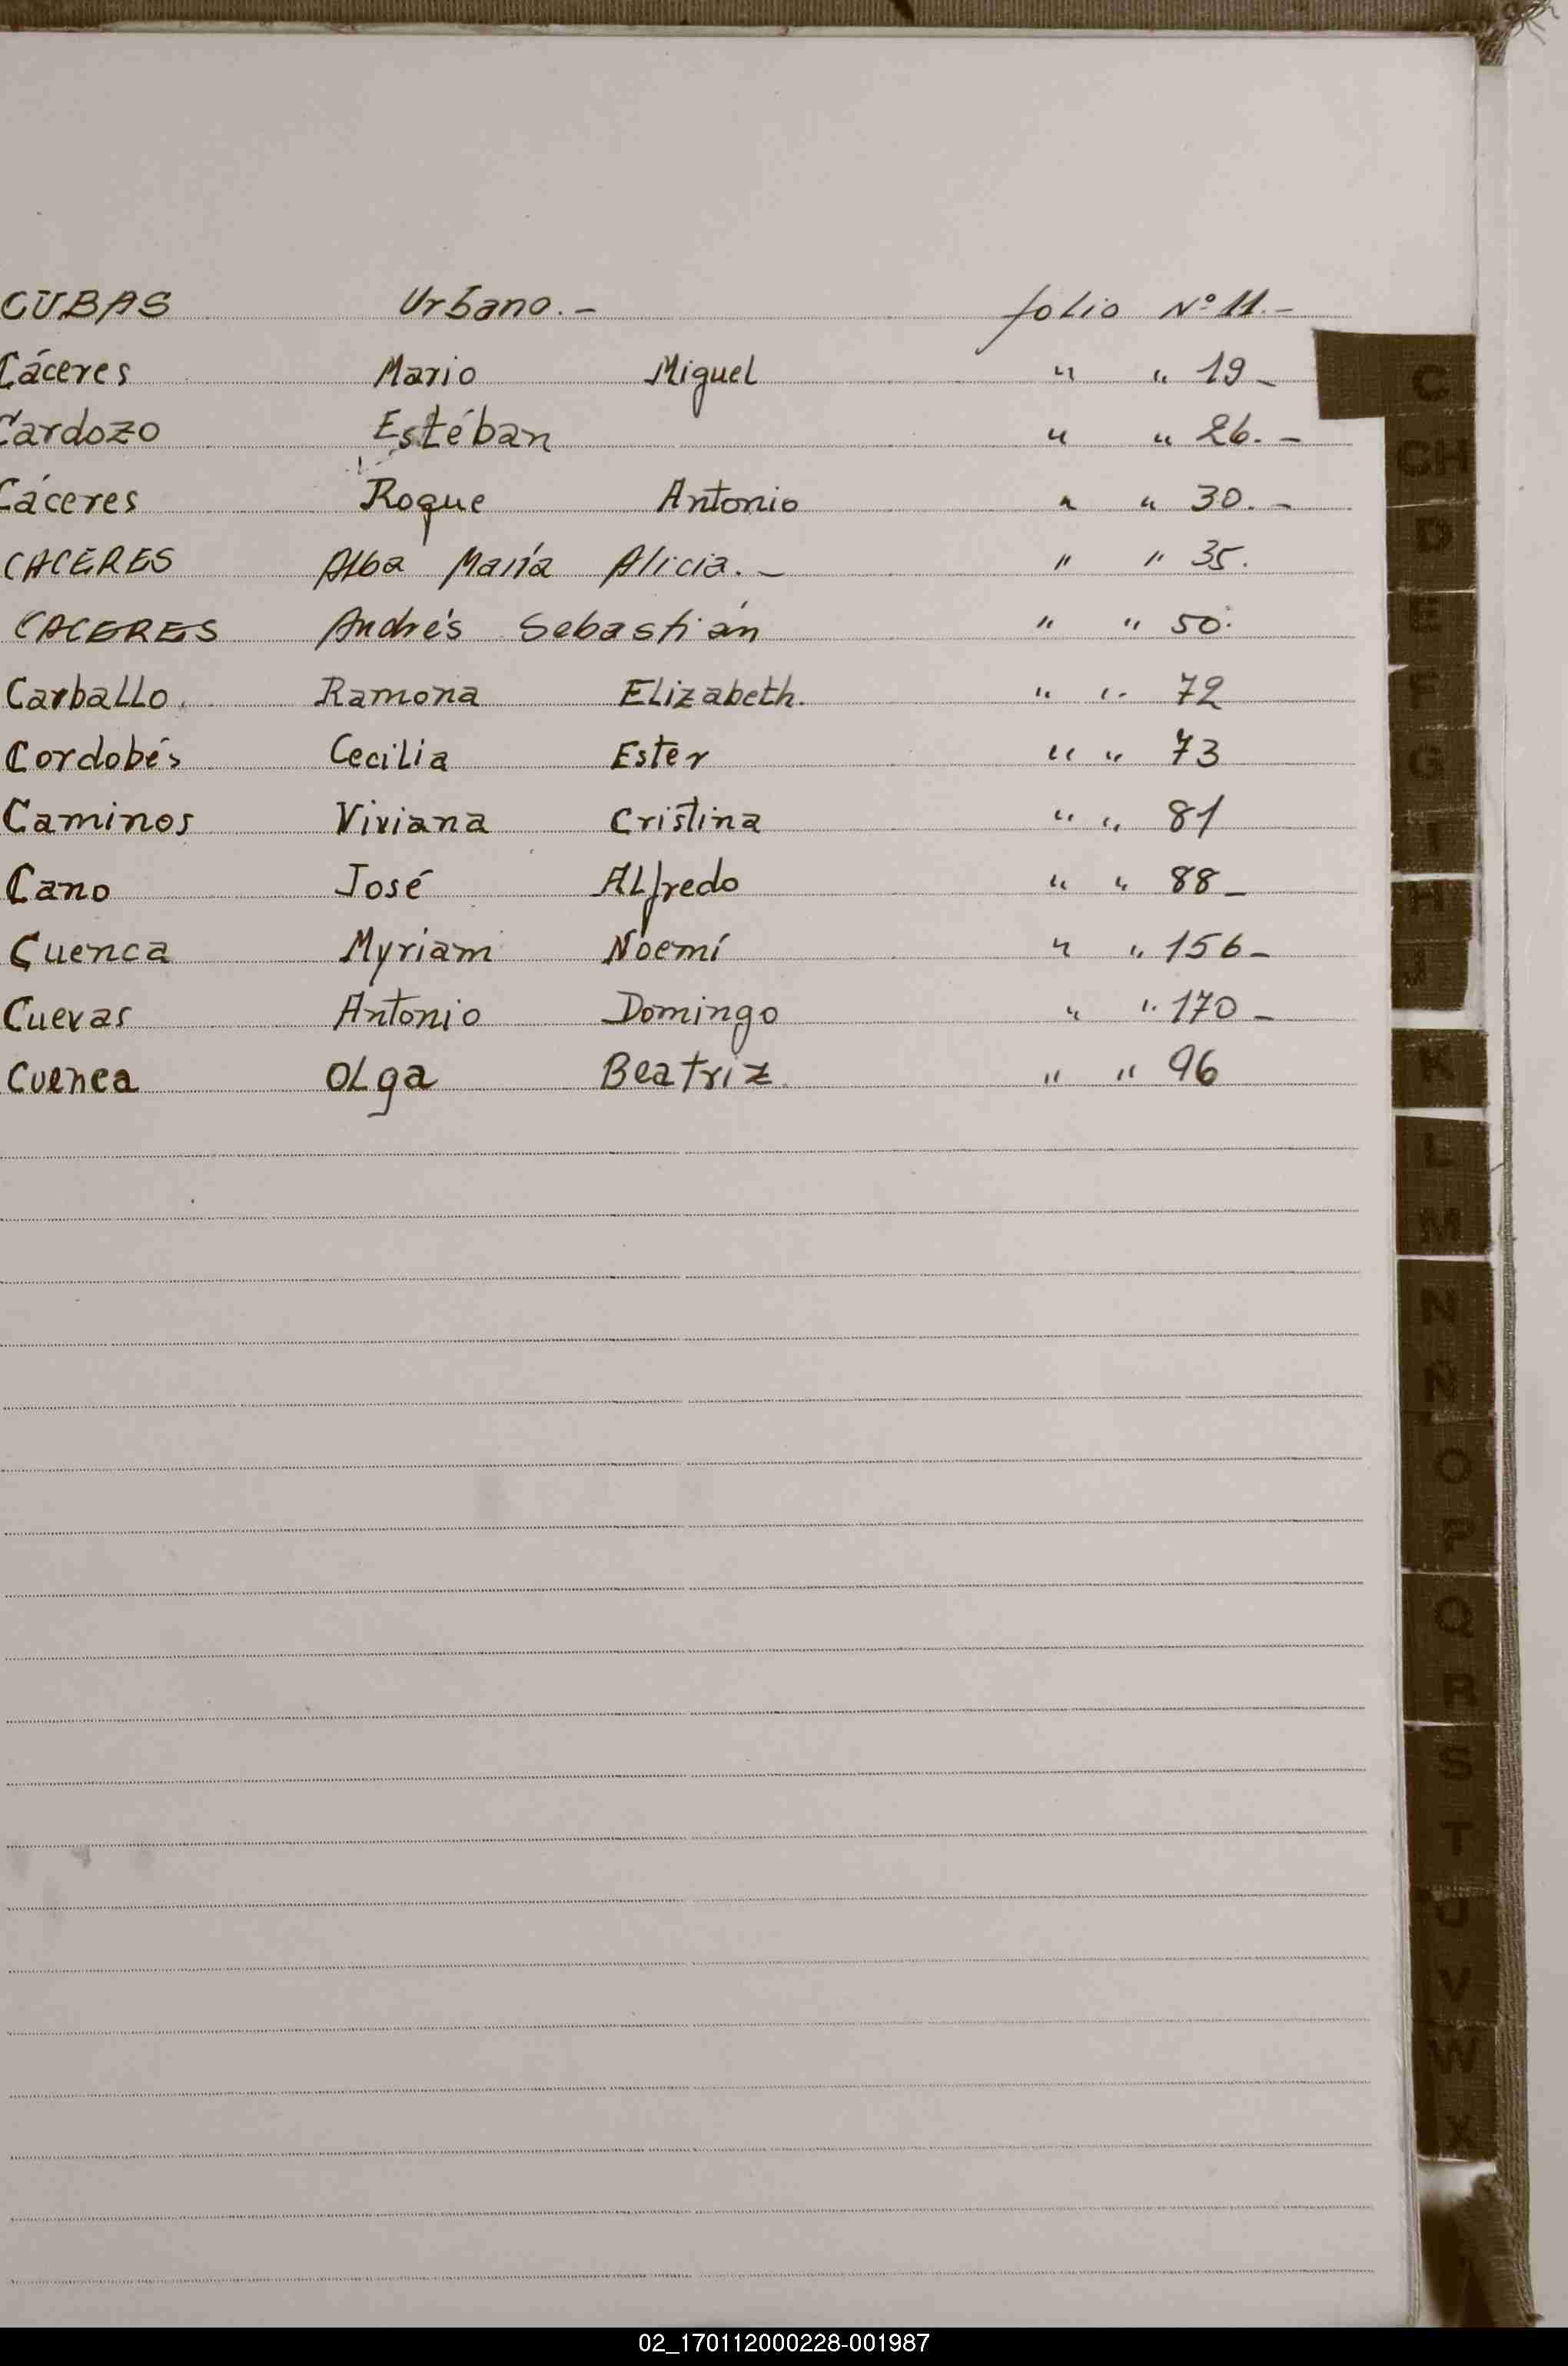 CUBAS Urbano.- folio Nº 11.-
Cáceres Mario Miguel " " 19-
Cardozo Estéban " " 26.-
Cáceres Roque Antonio " " 30.-
CACERES Alba María Alicia.- " " 35.
CACERES Andrés Sebastián " " 50.
Carballo. Ramona Elizabeth. " " 72
Cordobés Cecilia Ester " " 73
Caminos Viviana Cristina " " 81
Cano José Alfredo " " 88-
Cuenca Myriam Noemí " " 156-
Cuevas Antonio Domingo " " 170-
Cuenca Olga Beatriz. " " 96
C
CH
D
E
F
G
I
H
J
K
L
M
N
Ñ
O
P
Q
R
S
T
U
V
W
X
02_170112000228-001987